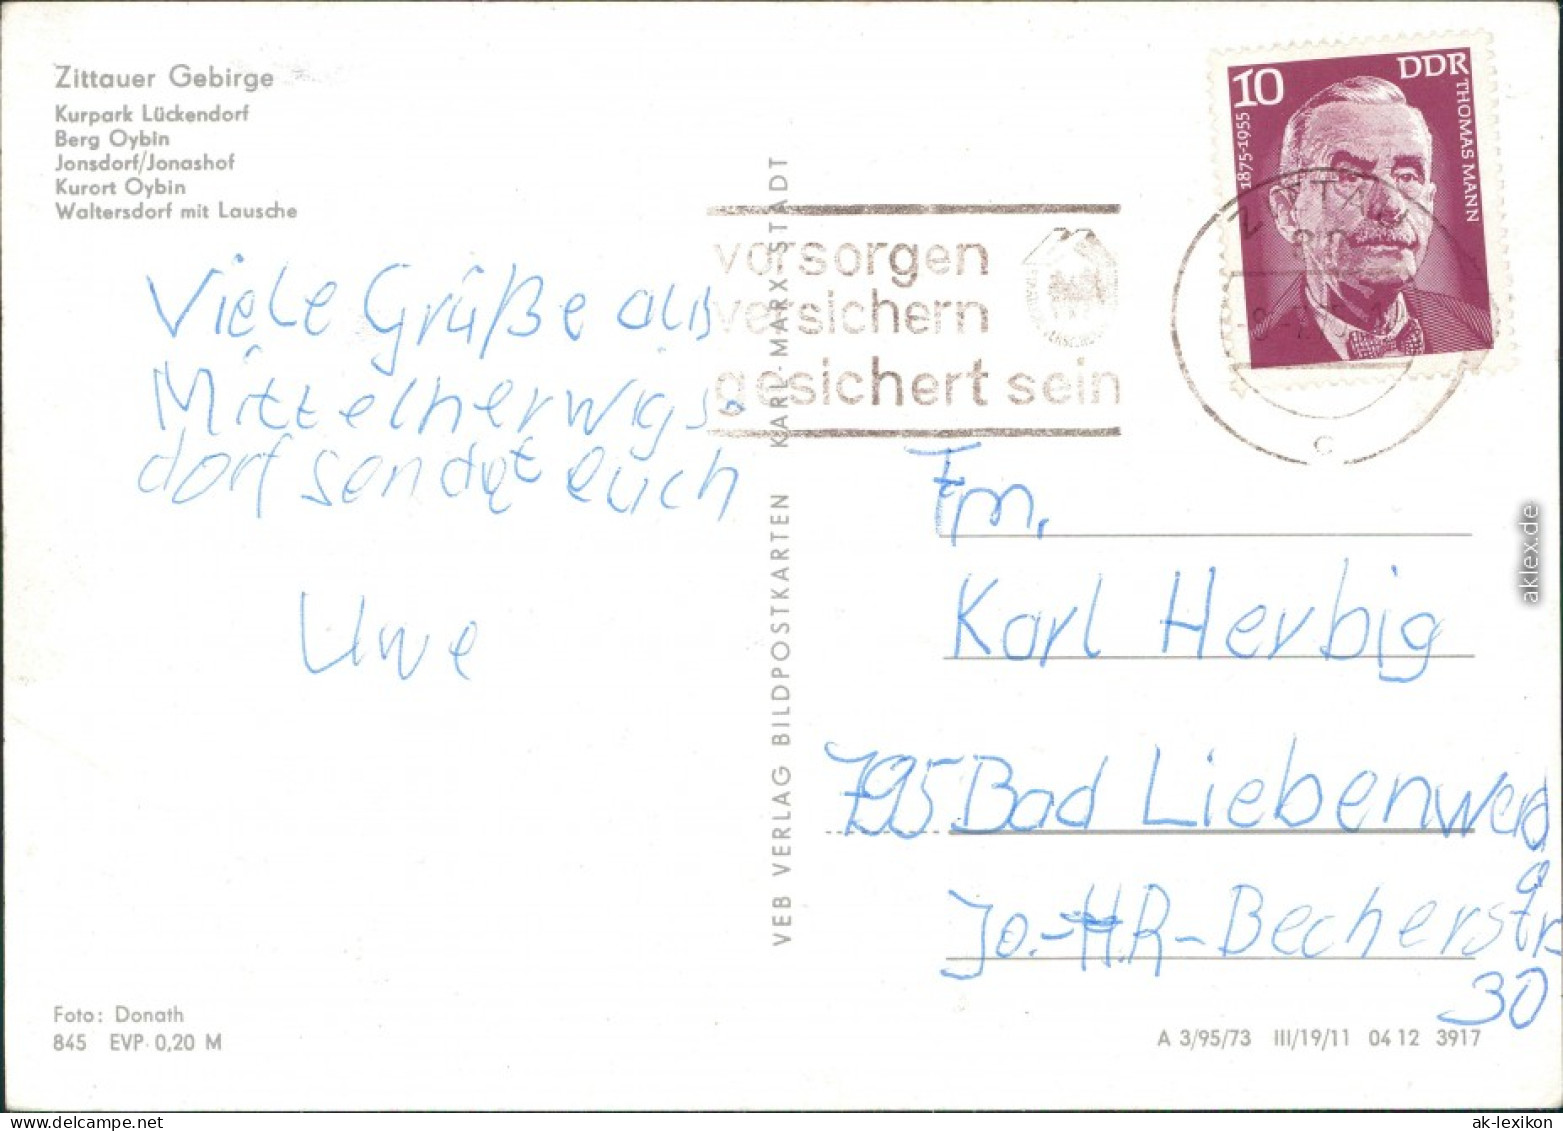 Zittauer Gebirge
Kurpark Lückendorf
Berg Oybin
Jonsdorf/Jonashof
Kurort Oybin
Waltersdorf mit Lausche
Viele Grüße aus
Mittelherwigs-
dorf sendet euch
Uwe
Foto: Donath
845 EVP 0,20 M
VEB VERLAG BILDPOSTKARTEN KARL-MARX-STADT
vorsorgen
versichern
gesichert sein
10 DDR
1875-1955
THOMAS MANN
ZITTAU
c
Fm.
Karl Herbig
795 Bad Liebenwerd
a
Jo.-H.R-Becherstr
30
A 3/95/73 III/19/11 04 12 3917
aklex.de
www.delcampe.net
ak-lexikon